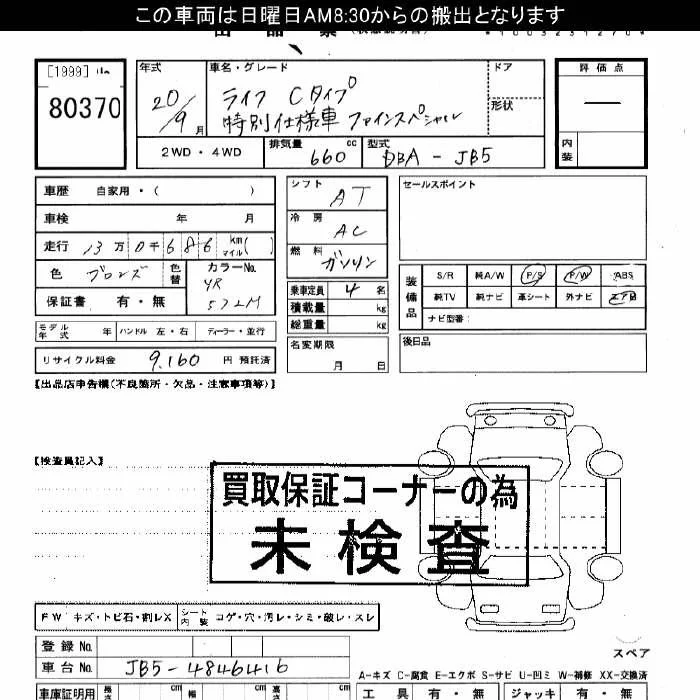 この車両は日曜日AM8:30からの搬出となります
[1999]
80370
年式
20/9月
車名・グレード
ライフ Cタイプ
特別仕様車 ファインスペシャル
ドア
形状
評価点
—
内装
2WD・4WD
排気量 660 cc
型式 DBA-JB5
車歴 自家用・( )
車検 年 月
走行 13万0千686 km マイル( )
色 ブロンズ
色替
カラーNo. YR572M
保証書 有・無
シフト AT
冷房 AC
燃料 ガソリン
乗車定員 4名
積載量 kg
総重量 kg
セールスポイント
装備品
S/R 純A/W P/S P/W ABS
純TV 純ナビ 革シート 外ナビ エアB
ナビ型番:
モデル年式 年 ハンドル 左・右 ディーラー・並行
名変期限 月 日
後日品
リサイクル料金 9,160 円 預託済
【出品店申告欄(不良箇所・欠品・注意事項等)】
【検査員記入】
買取保証コーナーの為
未検査
FW キズ・トビ石・割レX
シート内装 コゲ・穴・汚レ・シミ・破レ・スレ
スペア
登録No.
車台No. JB5-4846416
A-キズ C-腐食 E-エクボ S-サビ U-凹ミ W-補修 XX-交換済
車庫証明用 長さ cm 幅 cm 高さ cm
工具 有・無 ジャッキ 有・無